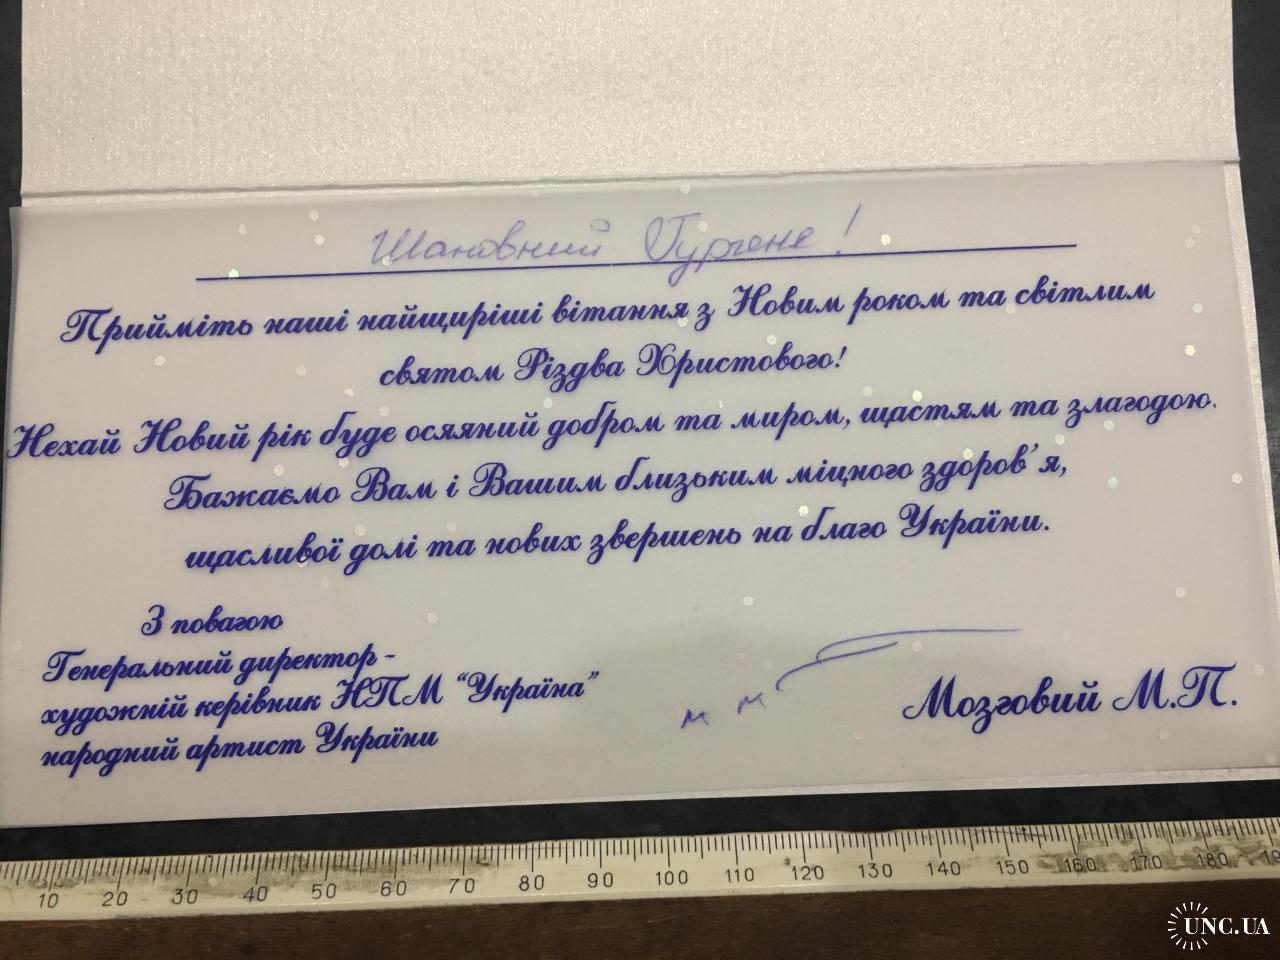 Шановний Гургене!
Прийміть наші найщиріші вітання з Новим роком та світлим
святом Різдва Христового!
Нехай Новий рік буде осяяний добром та миром, щастям та злагодою.
Бажаємо Вам і Вашим близьким міцного здоров'я,
щасливої долі та нових звершень на благо України.
З повагою
Генеральний директор -
художній керівник НПМ “Україна”
народний артист України
м м
Мозговий М.П.
10 20 30 40 50 60 70 80 90 100 110 120 130 140 150 160 170 180
UNC.UA